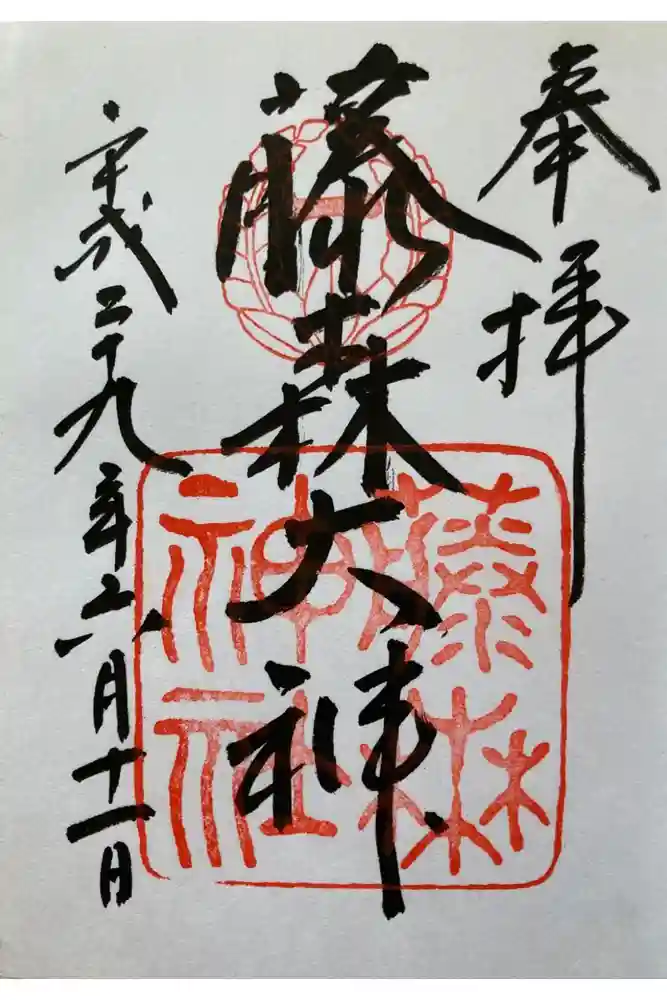 奉拝
藤森大神
平成二十九年六月十一日
藤森
神社